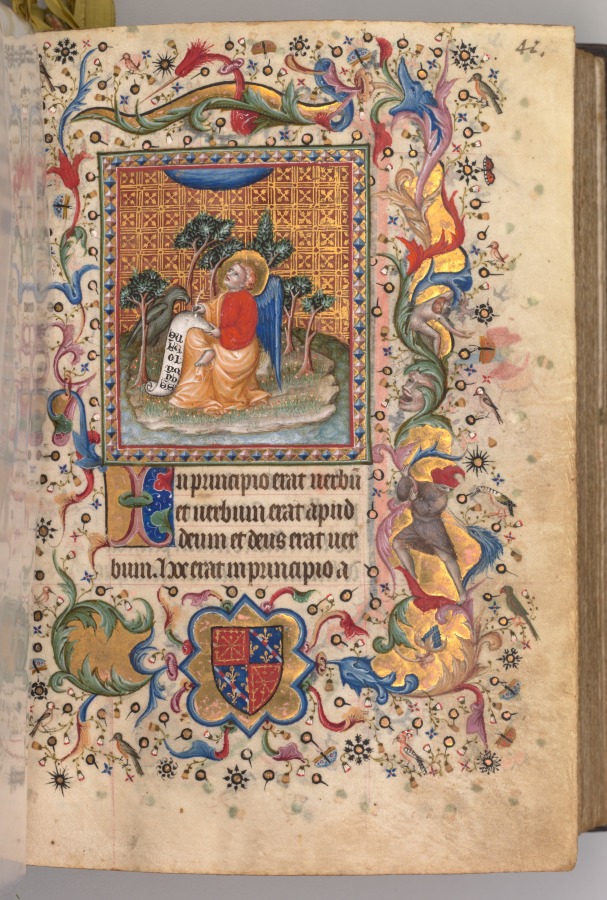 42.
In principio erat uerbū
et uerbum erat apud
deum et deus erat uer
bum. Hoc erat in principio a